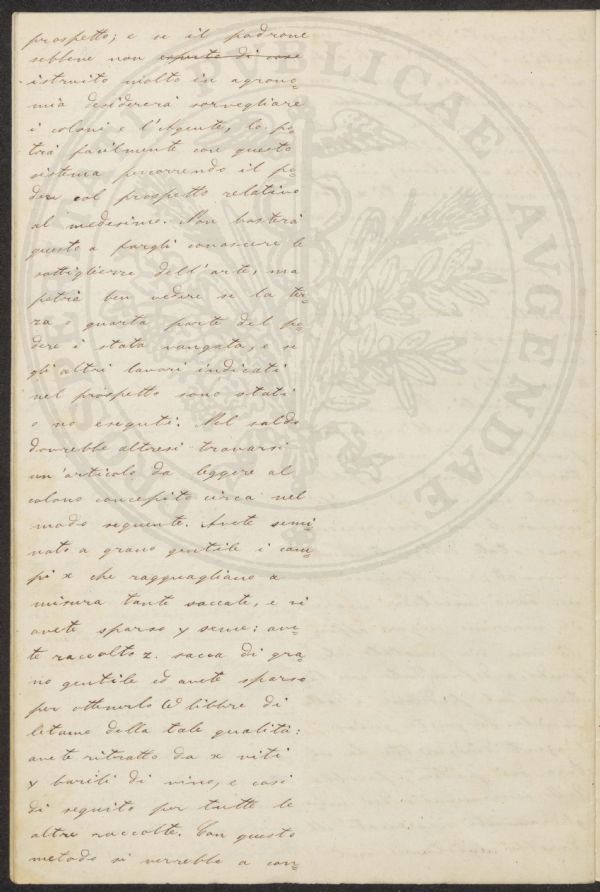 prospetto; e se il padrone
sebbene non esperto di cose
istruito molto in agrono=
mia desidererà sorvegliare
i coloni e l'Agente, lo po=
trà facilmente con questo
sistema percorrendo il po=
dere col prospetto relativo
al medesimo. Non basterà
questo a fargli conoscere le
sottigliezze dell'arte, ma
potrà ben vedere se la ter=
za o quarta parte del po=
dere è stata vangata, e se
gli altri lavori indicati
nel prospetto sono stati
o no eseguiti. Nel saldo
dovrebbe altresì trovarsi
un'articolo da leggere al
colono concepito circa nel
modo seguente. Avete semi=
nato a grano gentile i cam=
pi x che ragguagliano a
misura tante saccate, e vi
avete sparso y seme: ave=
te raccolto z. sacca di gra=
no gentile ed avete sparso
per ottenerlo libbre di
letame della tale qualità:
avete ritratto da x viti
y barili di vino, e così
di seguito per tutte le
altre raccolte. Con questo
metodo si verrebbe a con=
PUBLICAE
AUGENDAE
PROSPERITATI